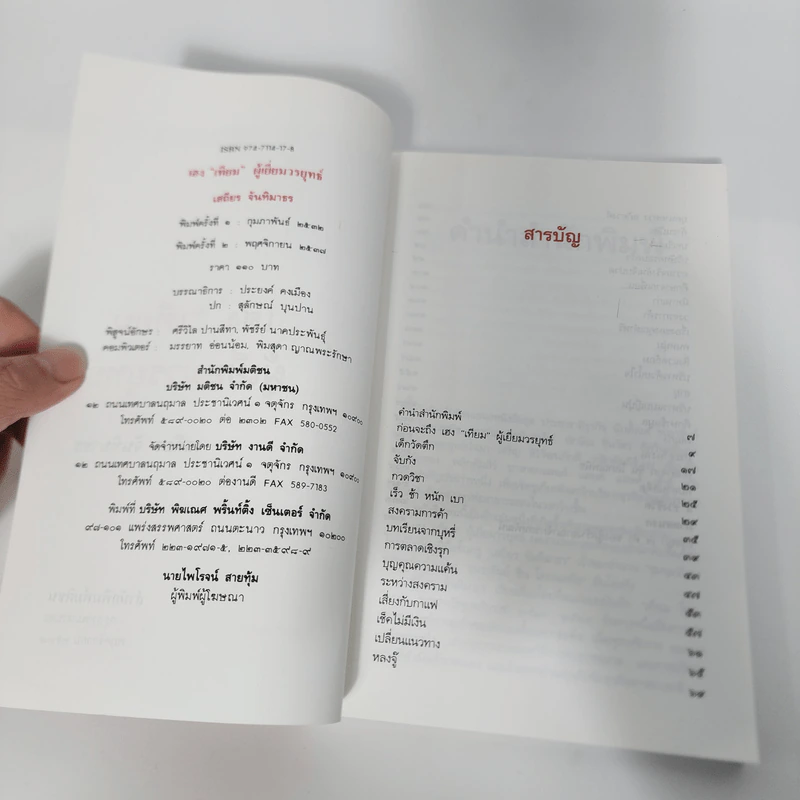 ISBN 974-7115-17-8
เฮง "เทียม" ผู้เยี่ยมวรยุทธ์
เสถียร จันทิมาธร
พิมพ์ครั้งที่ ๑ : กุมภาพันธ์ ๒๕๓๒
พิมพ์ครั้งที่ ๒ : พฤศจิกายน ๒๕๓๗
ราคา ๑๑๐ บาท
บรรณาธิการ : ประยงค์ คงเมือง
ปก : สุลักษณ์ บุนปาน
พิสูจน์อักษร : ศรีวิไล ปานสีทา, พัชรีย์ นาคประพันธุ์
คอมพิวเตอร์ : มรรยาท อ่อนน้อม, พิมสุดา ญาณพระรักษา
สำนักพิมพ์มติชน
บริษัท มติชน จำกัด (มหาชน)
๑๒ ถนนเทศบาลนฤมาล ประชานิเวศน์ ๑ จตุจักร กรุงเทพฯ ๑๐๙๐๐
โทรศัพท์ ๕๘๙-๐๐๒๐ ต่อ ๒๓๐๒ FAX 580-0552
จัดจำหน่ายโดย บริษัท งานดี จำกัด
๑๒ ถนนเทศบาลนฤมาล ประชานิเวศน์ ๑ จตุจักร กรุงเทพฯ ๑๐๙๐๐
โทรศัพท์ ๕๘๙-๐๐๒๐ ต่องานดี FAX 589-7183
พิมพ์ที่ บริษัท พิฆเณศ พริ้นท์ติ้ง เซ็นเตอร์ จำกัด
๙๘-๑๐๑ แพร่งสรรพศาสตร์ ถนนตะนาว กรุงเทพฯ ๑๐๒๐๐
โทรศัพท์ ๒๒๓-๑๙๘๑-๕, ๒๒๓-๓๕๙๘-๙
นายไพโรจน์ สายทุ้ม
ผู้พิมพ์ผู้โฆษณา
สารบัญ
คำนำสำนักพิมพ์ ๗
ก่อนจะถึง เฮง "เทียม" ผู้เยี่ยมวรยุทธ์ ๙
เด็กวัดตึก ๑๗
จับกัง ๒๑
กวดวิชา ๒๕
เร็ว ช้า หนัก เบา ๒๙
สงครามการค้า ๓๕
บทเรียนจากบุหรี่ ๓๙
การตลาดเชิงรุก ๔๓
บุญคุณความแค้น ๔๗
ระหว่างสงคราม ๕๓
เสี่ยงกับกาแฟ ๕๗
เช็คไม่มีเงิน ๖๑
เปลี่ยนแนวทาง ๖๕
หลงจู๊ ๖๙